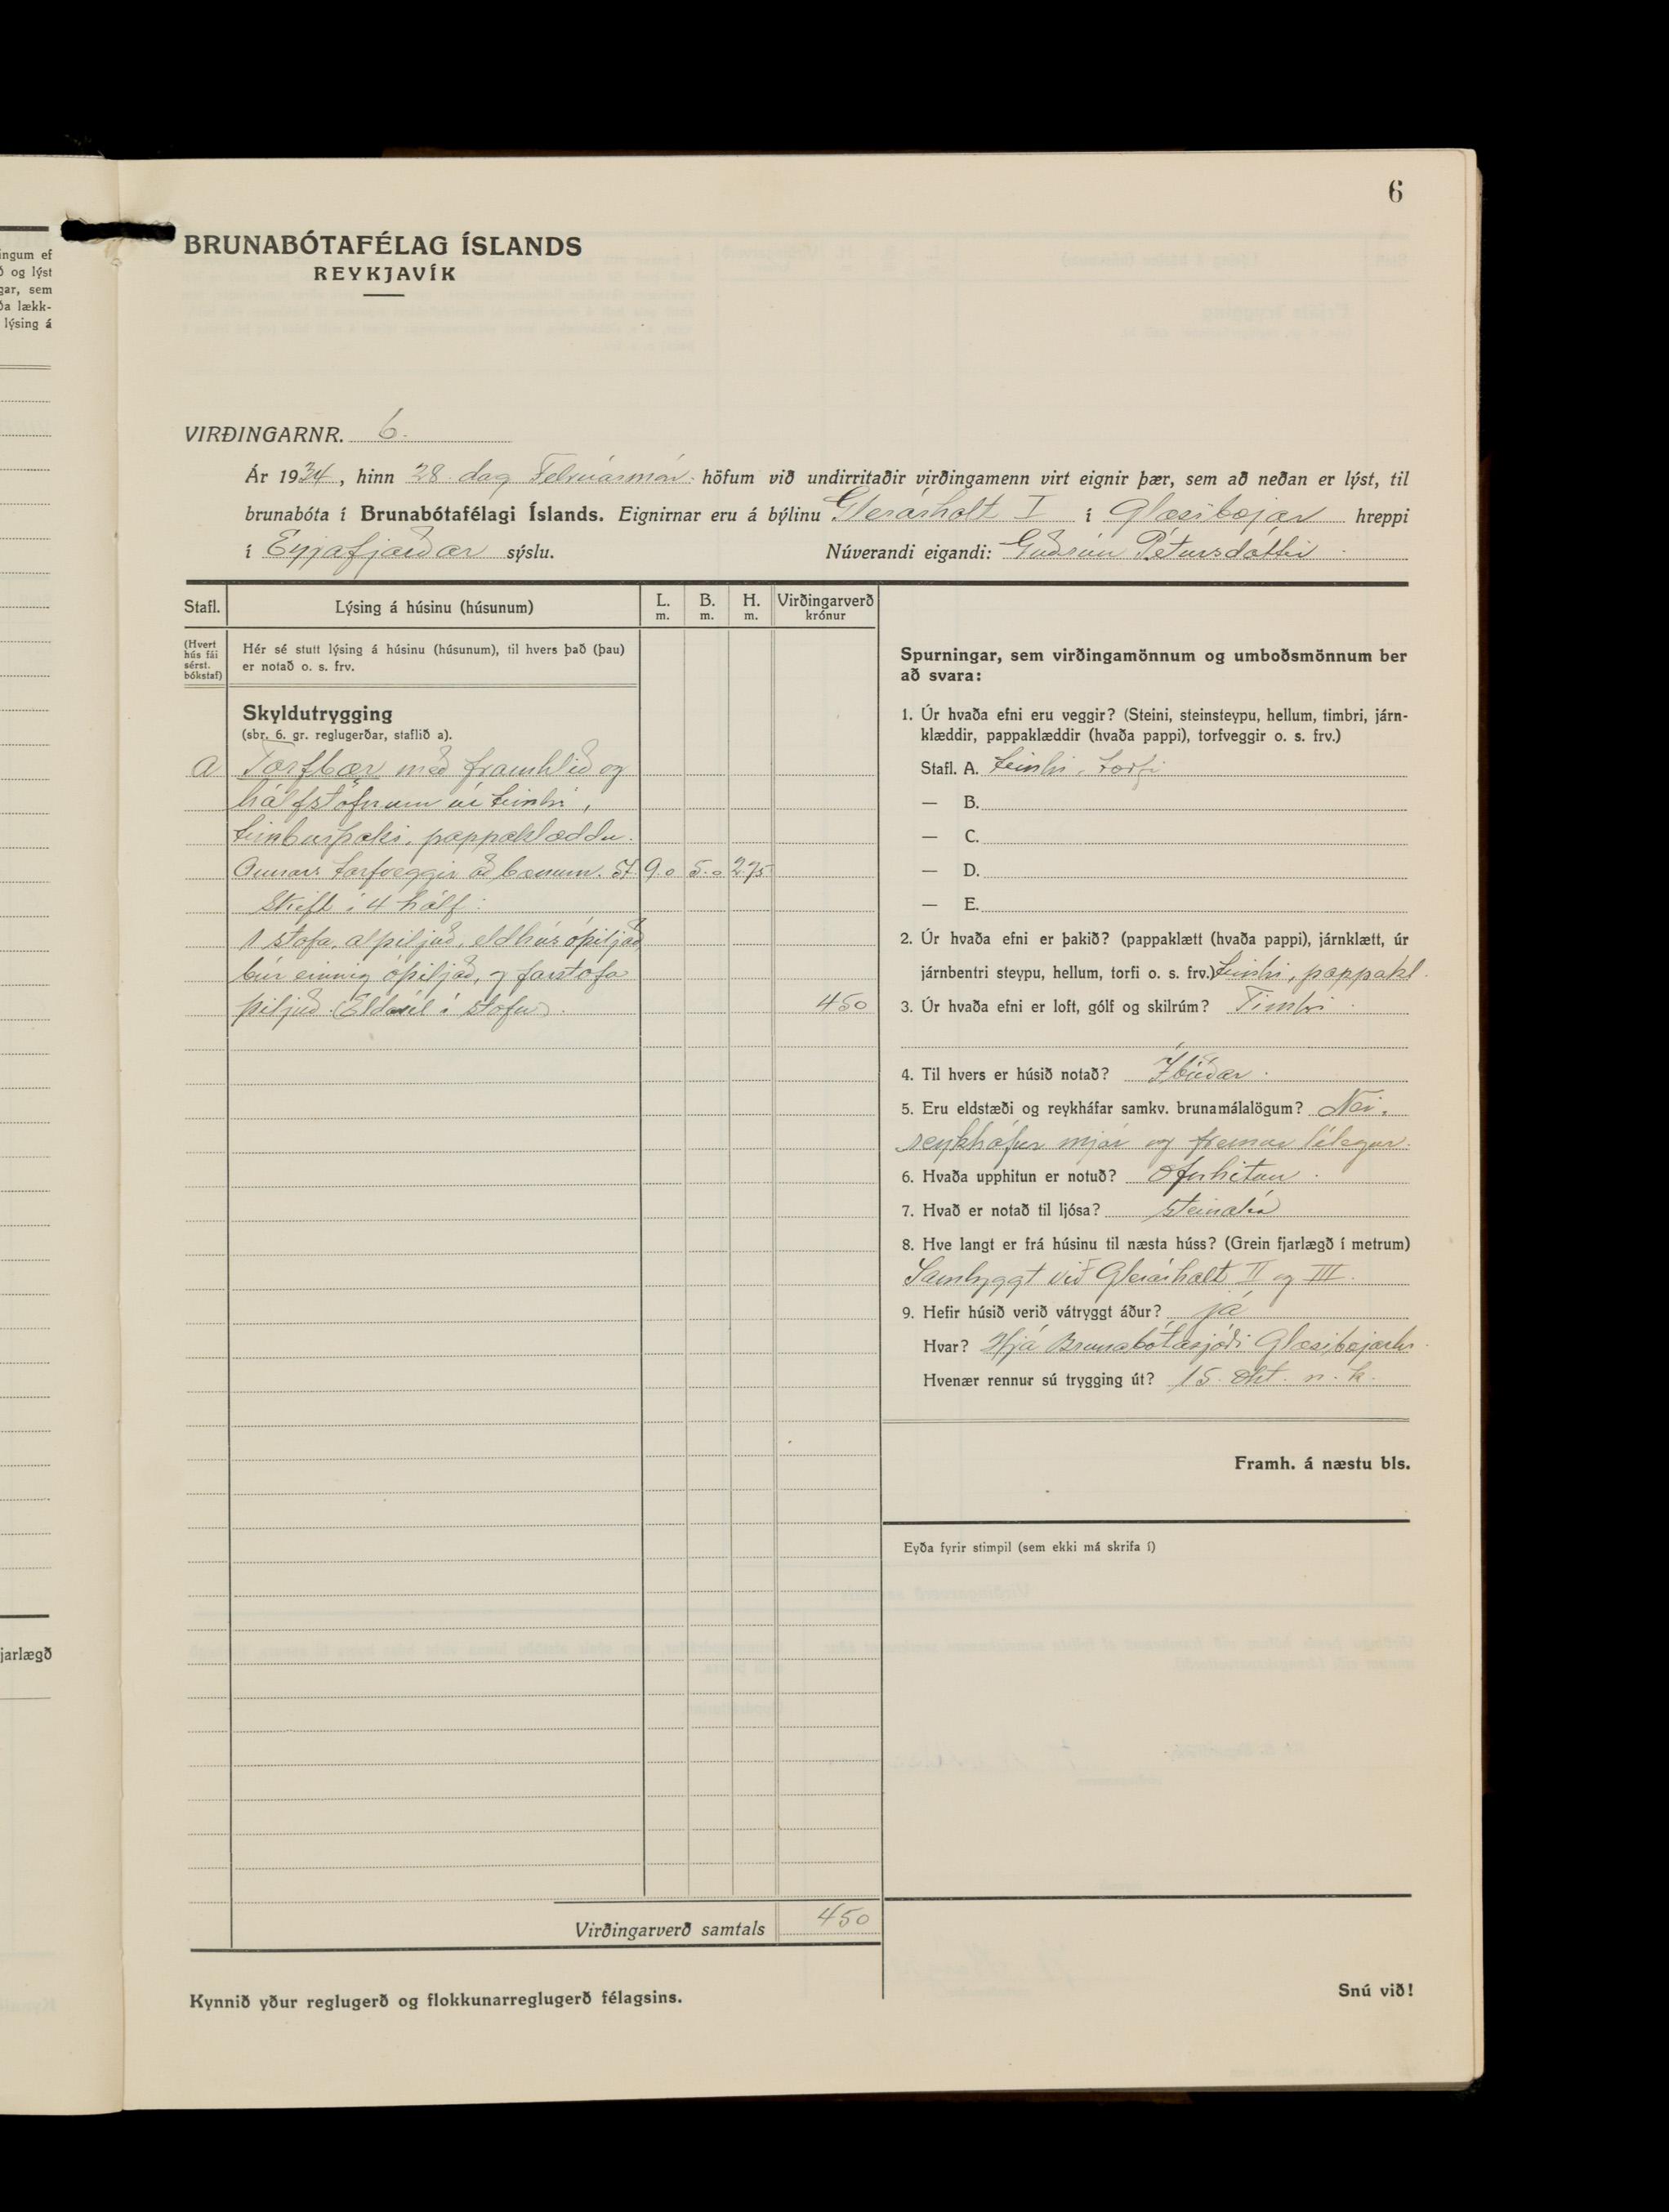 6
ingum ef
ð og lýst
gar, sem
ða lækk-
lýsing á
jarlægð
BRUNABÓTAFÉLAG ÍSLANDS
REYKJAVÍK
VIRÐINGARNR. 6.
Ár 1934, hinn 28. dag Febrúarmán. höfum við undirritaðir virðingamenn virt eignir þær, sem að neðan er lýst, til
brunabóta í Brunabótafélagi Íslands. Eignirnar eru á býlinu Glerárholt I í Glæsibæjar hreppi
í Eyjafjarðar sýslu. Núverandi eigandi: Guðrún Pétursdóttir
Stafl. Lýsing á húsinu (húsunum) L. m. B. m. H. m. Virðingarverð krónur
(Hvert hús fái sérst. bókstaf)
Hér sé stutt lýsing á húsinu (húsunum), til hvers það (þau)
er notað o. s. frv.
Skyldutrygging
(sbr. 6. gr. reglugerðar, staflið a).
a Torfbær með framhlið og
hálfstöfnum úr timbri,
timburþaki, pappaklæddu.
Annars torfveggir að bænum. St. 9.0 5.0 2.75
Skift í 4 hólf:
1 stofa, alþiljuð, eldhús óþiljað,
búr einnig óþiljað, og forstofa
þiljuð. (Eldavél í stofu). 450
Virðingarverð samtals 450
Kynnið yður reglugerð og flokkunarreglugerð félagsins.
Spurningar, sem virðingamönnum og umboðsmönnum ber
að svara:
1. Úr hvaða efni eru veggir? (Steini, steinsteypu, hellum, timbri, járn-
klæddir, pappaklæddir (hvaða pappi), torfveggir o. s. frv.)
Stafl. A. timbri, torfi
— B.
— C.
— D.
— E.
2. Úr hvaða efni er þakið? (pappaklætt (hvaða pappi), járnklætt, úr
járnbentri steypu, hellum, torfi o. s. frv.) timbri, pappakl.
3. Úr hvaða efni er loft, gólf og skilrúm? Timbri
4. Til hvers er húsið notað? Íbúðar.
5. Eru eldstæði og reykháfar samkv. brunamálalögum? Nei.
reykháfur mjór og fremur lélegur.
6. Hvaða upphitun er notuð? Ofnhitun.
7. Hvað er notað til ljósa? steinolía
8. Hve langt er frá húsinu til næsta húss? (Grein fjarlægð í metrum)
Sambyggt við Glerárholt II og III.
9. Hefir húsið verið vátryggt áður? já
Hvar? Hjá Brunabótasjóði Glæsibæjarhr.
Hvenær rennur sú trygging út? 15. okt. n. k.
Framh. á næstu bls.
Eyða fyrir stimpil (sem ekki má skrifa í)
Snú við!